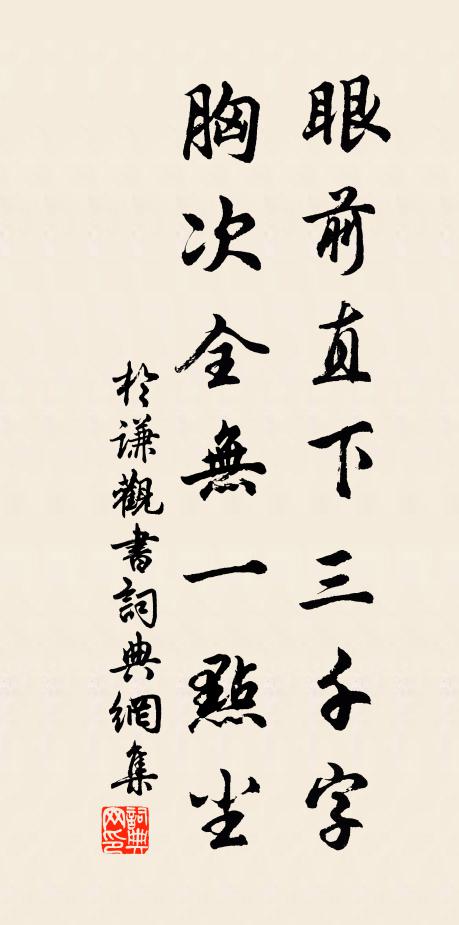 眼前直下三千字
胸次全無一點尘
於謙觀書詞典網集
詞典
网印